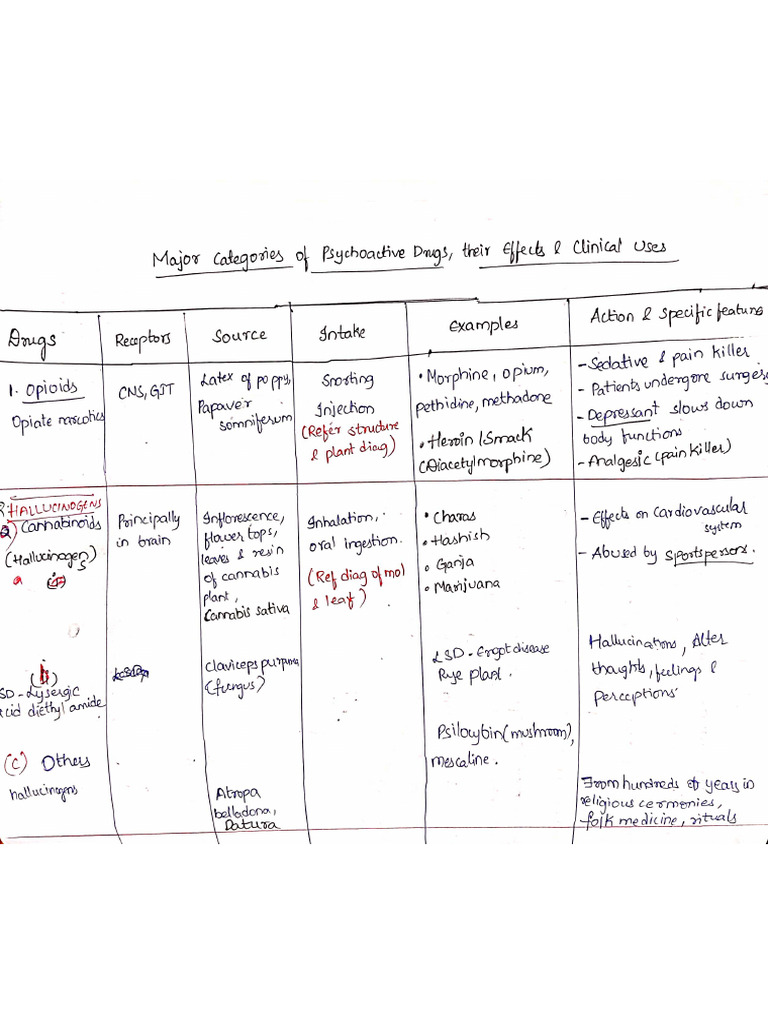 Major Categories of Psychoactive Drugs, their Effects & Clinical Uses
Drugs
Receptors
Source
Intake
Examples
Action & Specific features
1. Opioids
Opiate narcotics
CNS, GIT
Latex of poppy,
Papaveir
somniferum
Snorting
Injection
(Refer structure
& plant diag)
• Morphine, opium,
pethidine, methadone
• Heroin / Smack
(Diacetylmorphine)
- Sedative & pain killer
- Patients undergone surgery
- Depressant slows down
body functions
- Analgesic (pain killer)
HALLUCINOGENS
Cannabinoids
(Hallucinogens)
a
Principally
in brain
Inflorescence,
flower tops,
leaves & resin
of cannabis
plant,
Cannabis sativa
Inhalation,
oral ingestion.
(Ref diag of mol
& leaf)
• Charas
• Hashish
• Ganja
• Marijuana
- Effects on Cardiovascular
system
- Abused by sportspersons.
(b)
SD - Lysergic
cid diethyl amide
Claviceps purpurea
(fungus)
LSD - Ergot disease
Rye plant.
Hallucinations, Alter
thoughts, feelings &
perceptions
(C) Others
hallucinogens
Atropa
belladona,
Datura
Psilocybin (mushroom),
mescaline.
From hundreds of years in
religious cermonies,
folk medicine, rituals